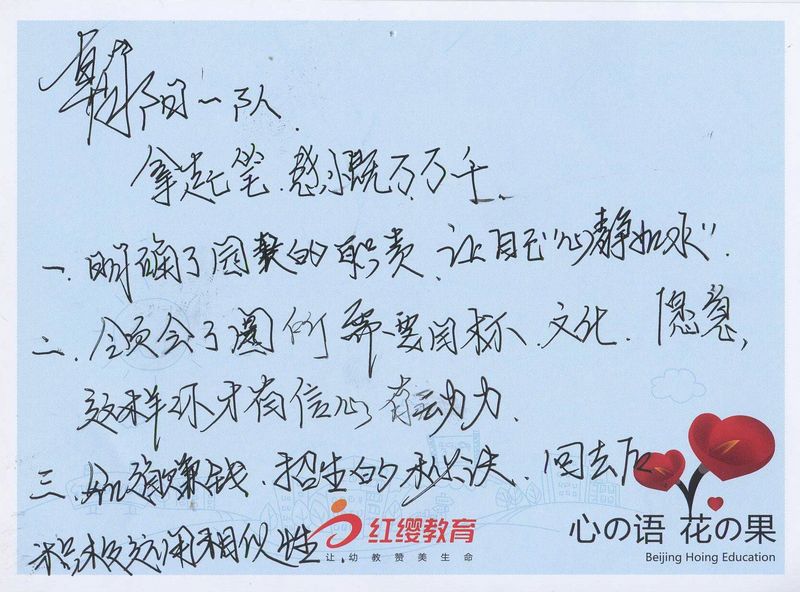 朝阳一队
拿起笔.感慨万万千.
一.明确了园长的职责.让自己"心静如水".
二.领会了園所需要目标.文化.愿意,
这样环才有信心有动力.
三.幼确赚钱.招生的秘诀.回去后
相似性.
红缨教育
让幼教赞美生命
心の语 花の果
Beijing Hoing Education